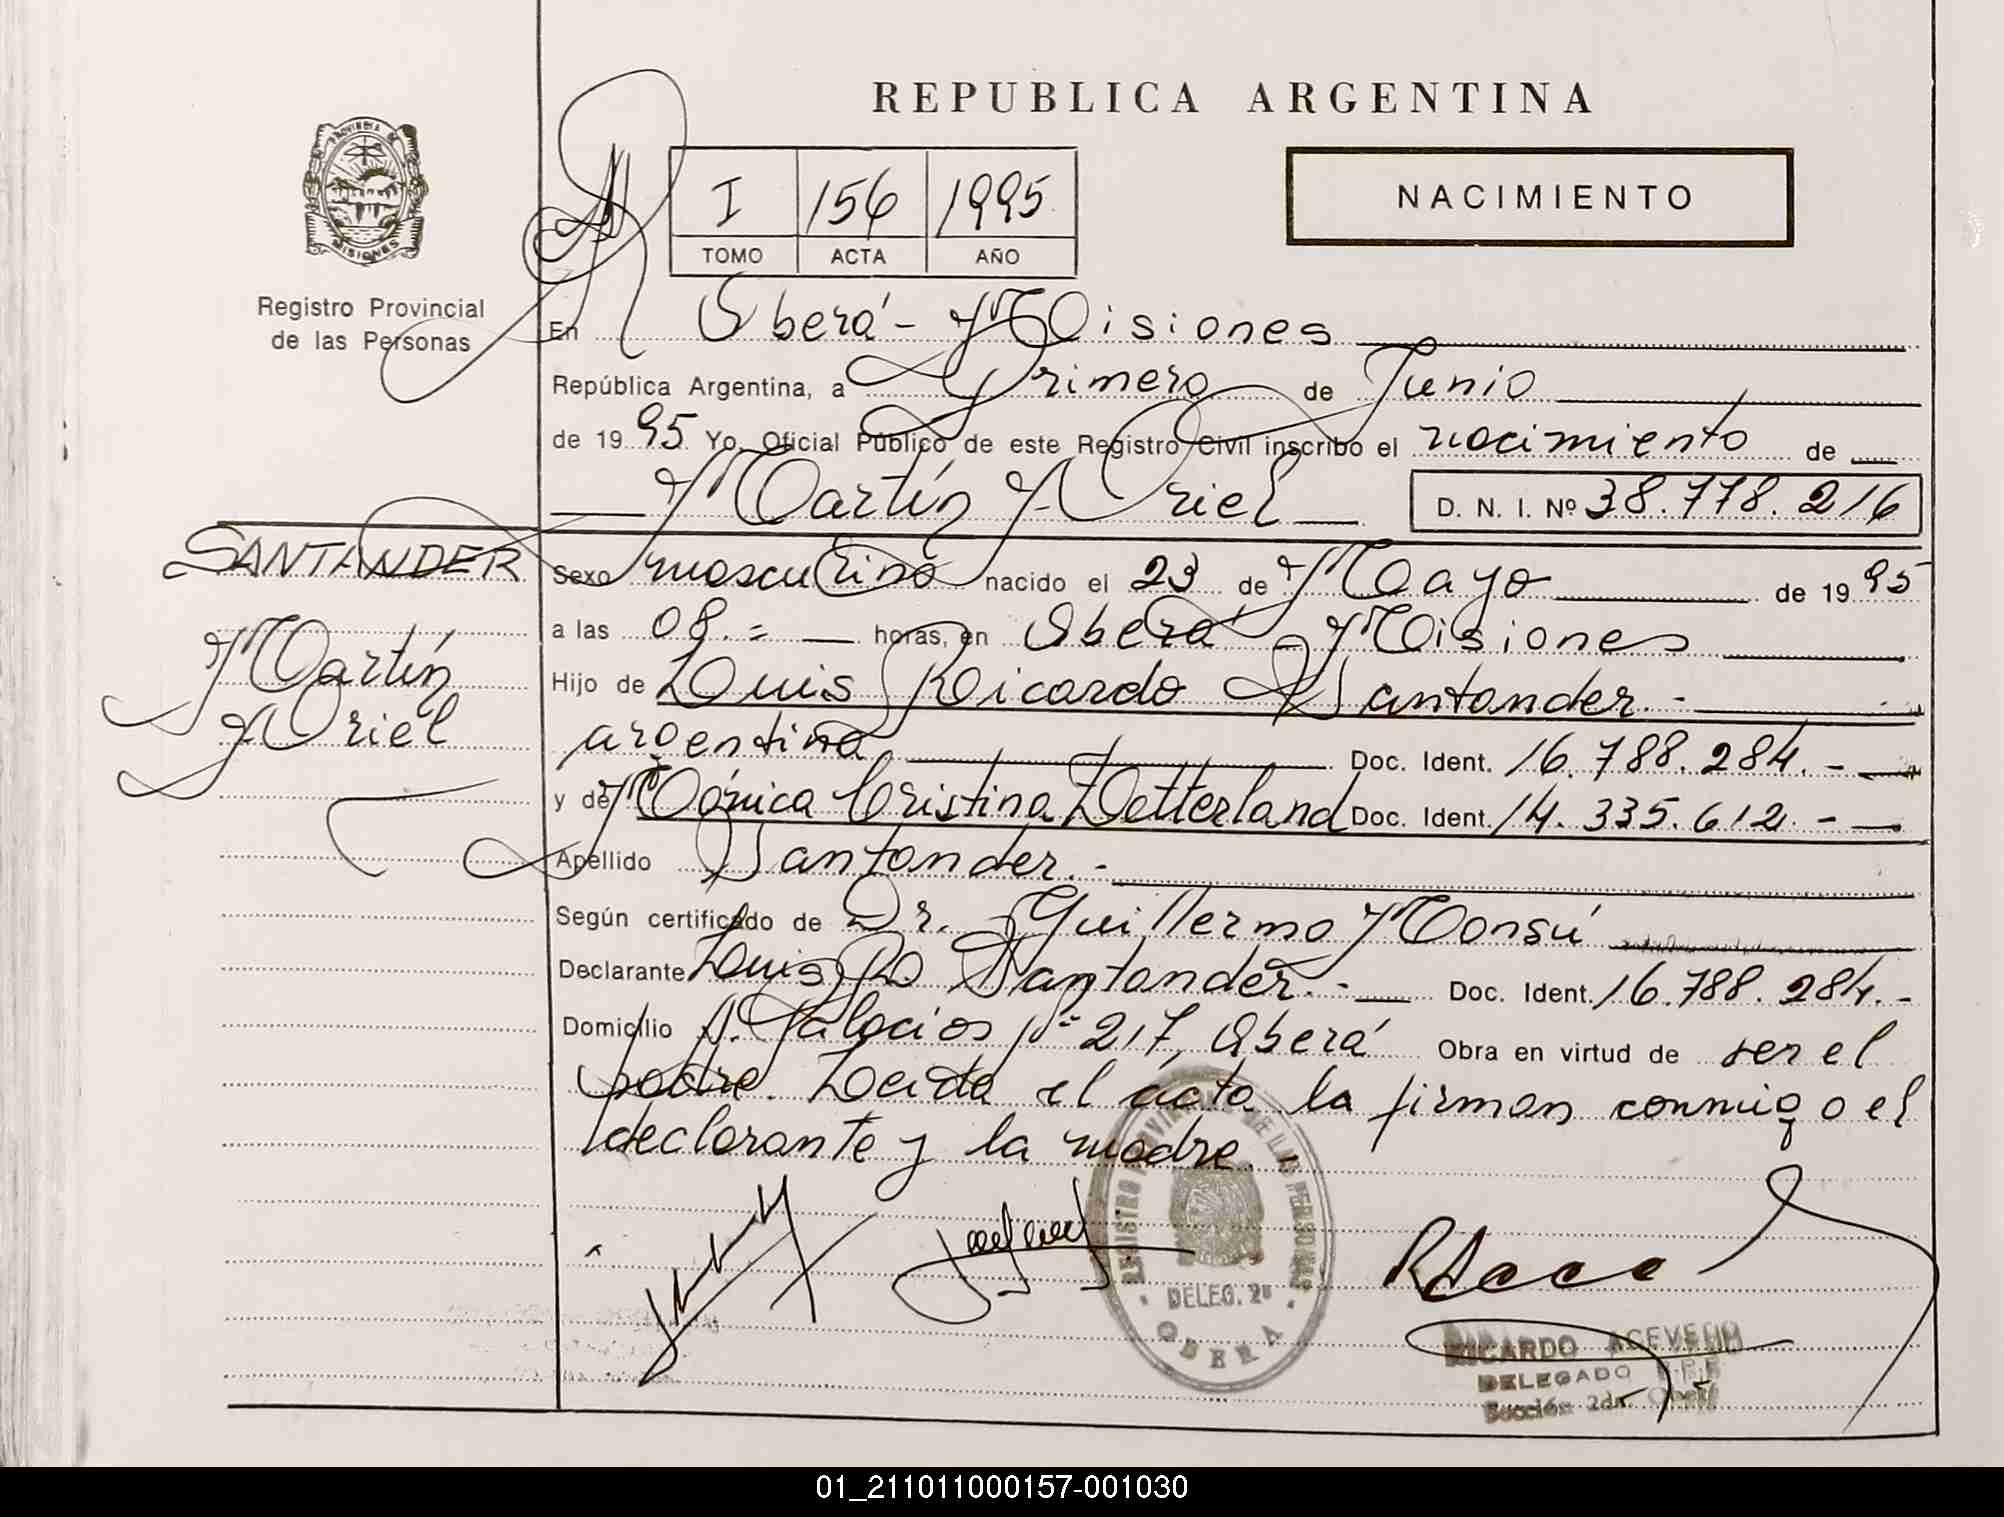 REPUBLICA ARGENTINA
PROVINCIA DE MISIONES
Registro Provincial
de las Personas
I 156 1995
TOMO ACTA AÑO
NACIMIENTO
En Oberá - Misiones
República Argentina, a Primero de Junio
de 1995 Yo, Oficial Público de este Registro Civil inscribo el nacimiento de
Martín Uriel D. N. I. Nº 38.778.216
SANTANDER
Martín
Uriel
Sexo masculino nacido el 23 de Mayo de 1995
a las 08.= horas, en Oberá - Misiones
Hijo de Luis Ricardo Santander.-
argentina Doc. Ident. 16.788.284.-
y de Mónica Cristina Zetterland Doc. Ident. 14.335.612.-
Apellido Santander.-
Según certificado de Dr. Guillermo Monsú
Declarante Luis R. Santander.- Doc. Ident. 16.788.284.-
Domicilio A. Palacios Nº 217, Oberá Obra en virtud de ser el
padre. Leida el acta la firman conmigo el
declarante y la madre.-
REGISTRO PROVINCIAL DE LAS PERSONAS
DELEG. 2ª
OBERA
RICARDO ACEVEDO
DELEGADO R.P.P.
Sección 2da. Oberá
01_211011000157-001030